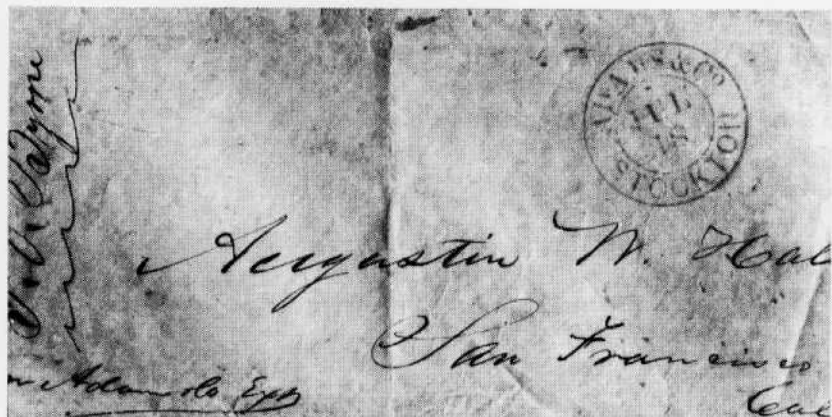 ADAMS & CO.
JUL
STOCKTON
Augustin W. Hal
San Francisco
Cal
Adams & Co Exp